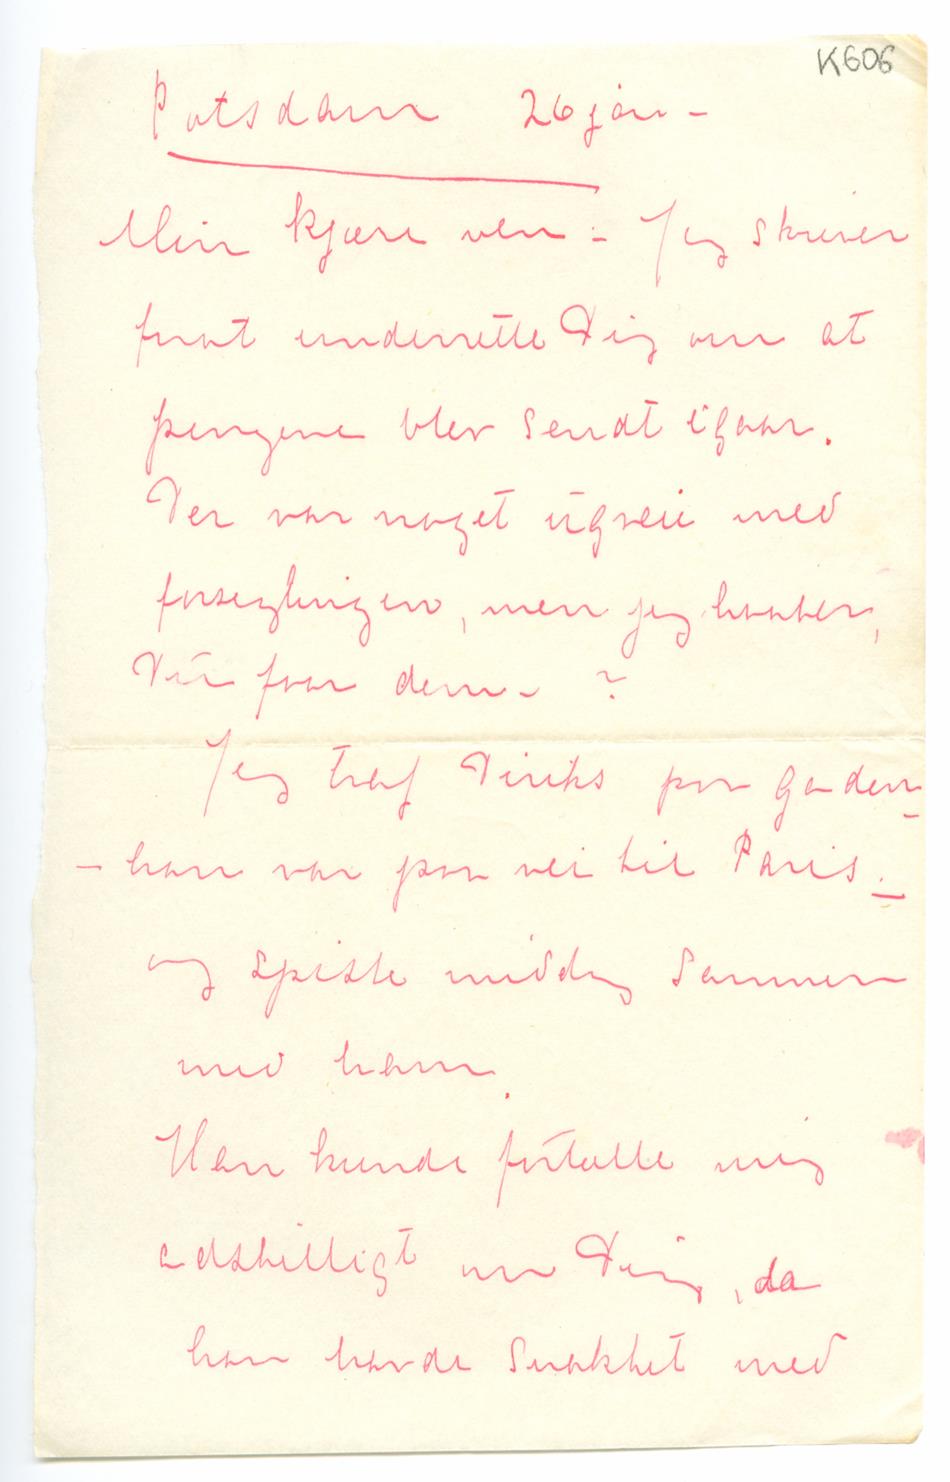 K606
Potsdam 26 jan –
Min kjære ven – Jeg skriver
forat underrette Dig om at
pengene blev sendt igaar.
Der var noget ugreie med
forseglingen, men jeg haaber,
Du faar dem – ?
Jeg traf Diriks paa Gaden –
– han var paa vei til Paris –
og spiste middag sammen
med ham.
Han kunde fortælle mig
adskilligt om Dig, da
han havde snakket med